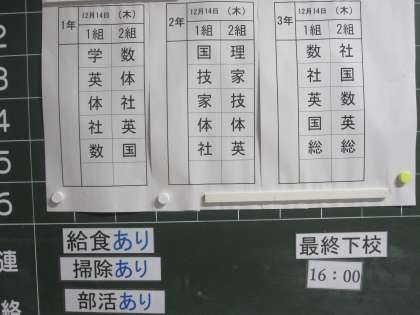 1年 12月14日 (木)
1組 2組
学 数
英 体
体 社
社 英
数 国
2年 12月14日 (木)
1組 2組
国 理
技 家
家 技
体 体
社 英
3年 12月14日 (木)
1組 2組
数 社
社 国
英 数
国 英
総 総
2
3
4
5
6
連
絡
給食あり
掃除あり
部活あり
最終下校
16:00